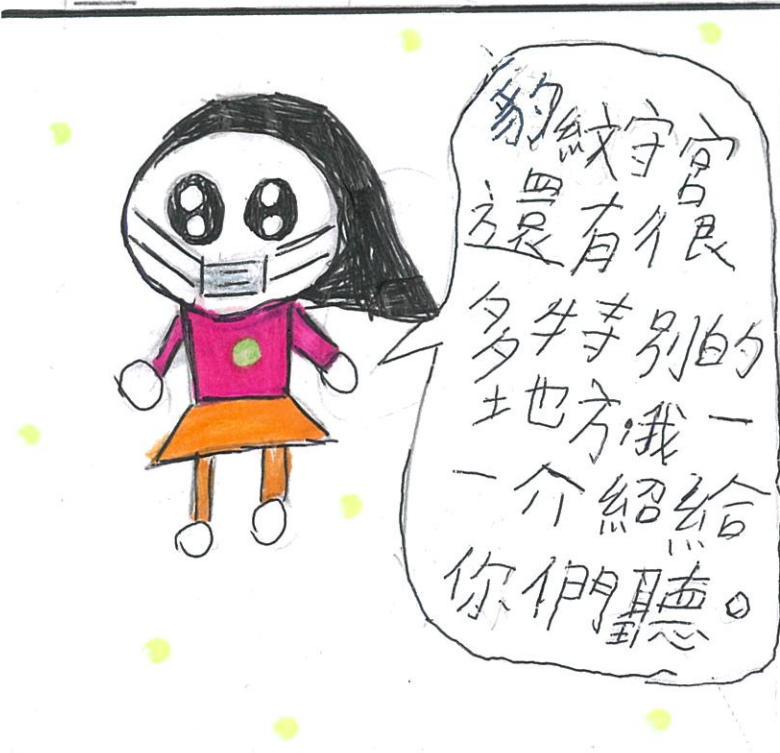 豹紋守宮
還有很
多特別的
地方,我一
一介紹給
你們聽。